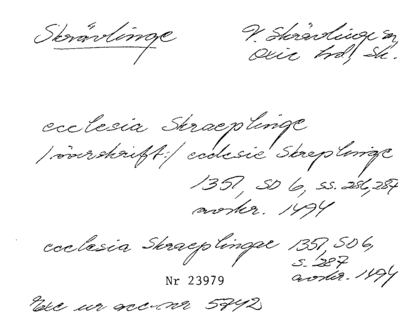 Skrävlinge
V. Skrävlinge sn,
Oxie hd, Sk.
ecclesia Skraeplinge
/överskrift:/ ecclesie Skreplinge
1351, SD 6, ss. 286, 287
avskr. 1494
ecclesia Skraeplingae 1351, SD 6,
s. 287
avskr. 1494
Nr 23979
Exc ur acc-nr 5742